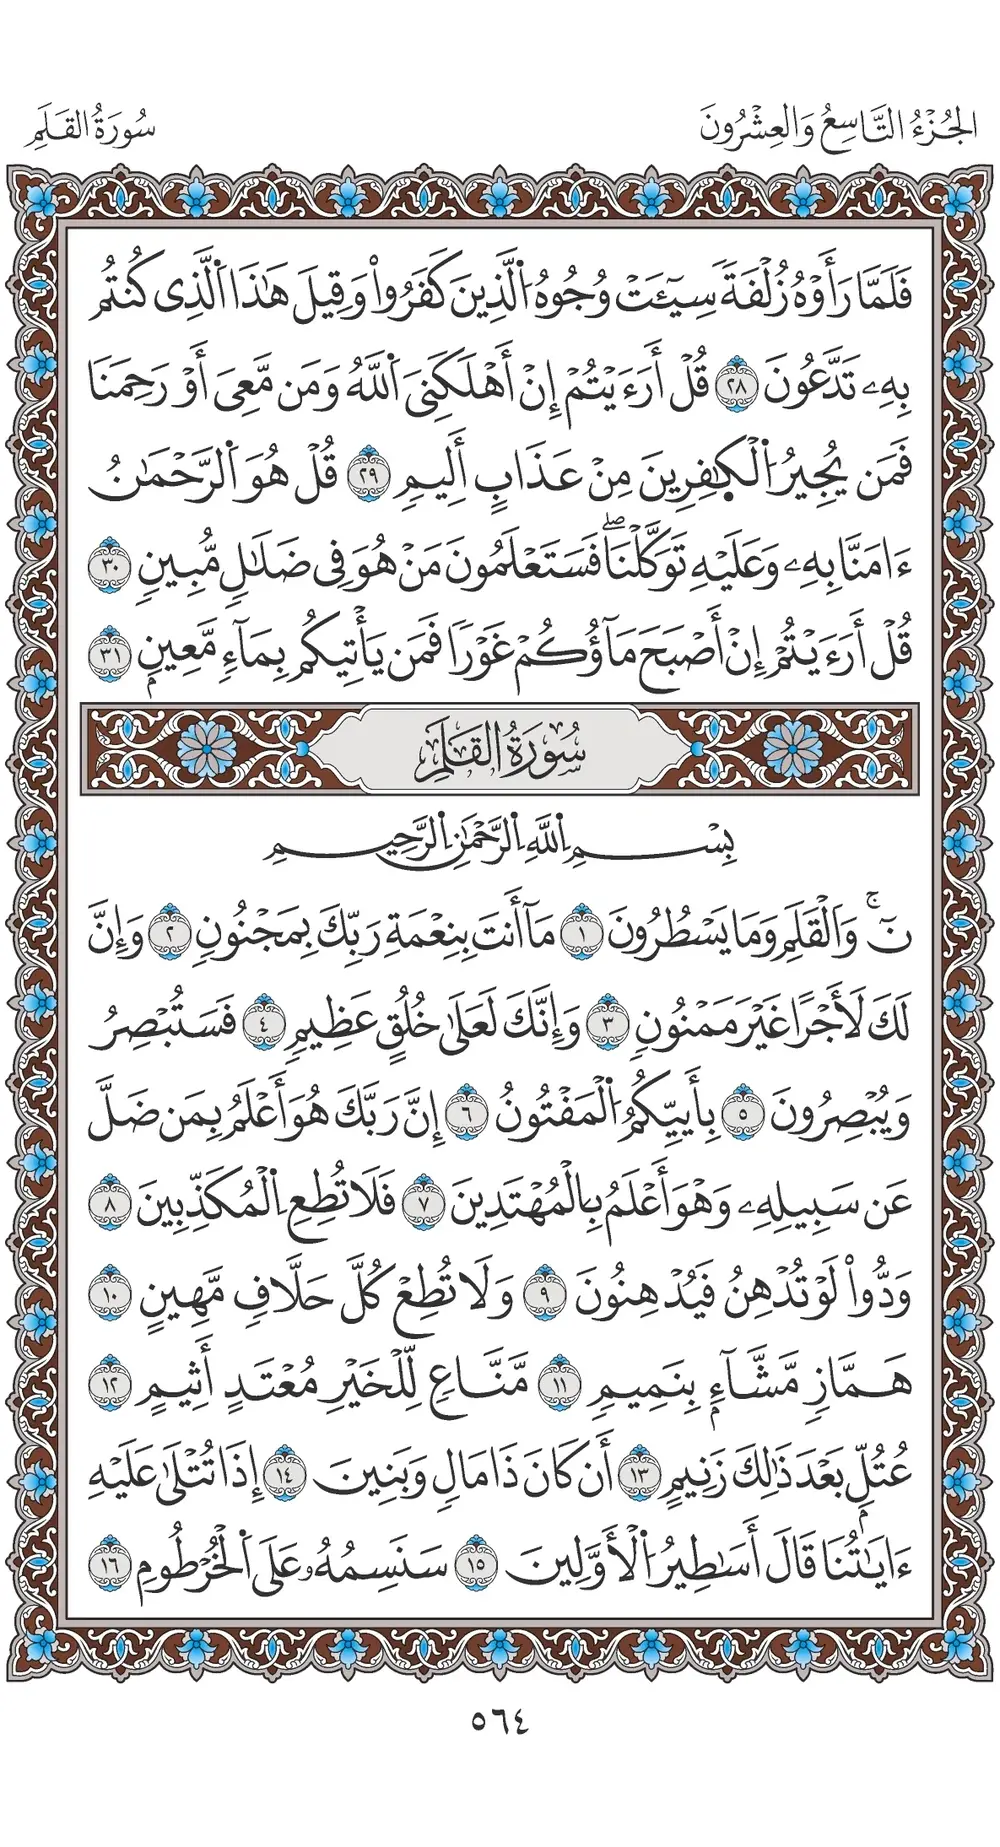 الجُزْءُ التَّاسِعُ وَالعِشْرُونَ
سُورَةُ القَلَمِ
فَلَمَّا رَأَوْهُ زُلْفَةً سِيٓـَٔتْ وُجُوهُ اُ۬لَّذِينَ كَفَرُواْ وَقِيلَ هَٰذَا اَ۬لَّذِى كُنتُم
بِهِۦ تَدَّعُونَ ٢٨ قُلْ أَرَءَيْتُمْ إِنْ أَهْلَكَنِىَ اَ۬للَّهُ وَمَن مَّعِىَ أَوْ رَحِمَنَا
فَمَن يُجِيرُ اُ۬لْكَٰفِرِينَ مِنْ عَذَابٍ أَلِيمٍ ٢٩ قُلْ هُوَ اَ۬لرَّحْمَٰنُ
ءَامَنَّا بِهِۦ وَعَلَيْهِ تَوَكَّلْنَاۖ فَسَتَعْلَمُونَ مَنْ هُوَ فِى ضَلَٰلٍ مُّبِينٍ ٣٠
قُلْ أَرَءَيْتُمْ إِنْ أَصْبَحَ مَآؤُكُمْ غَوْرًا فَمَن يَأْتِيكُم بِمَآءٍ مَّعِينٍۭ ٣١
سُورَةُ القَلَمِ
بِسْمِ اِ۬للَّهِ اِ۬لرَّحْمَٰنِ اِ۬لرَّحِيمِ
نٓۚ وَالْقَلَمِ وَمَا يَسْطُرُونَ ١ مَآ أَنتَ بِنِعْمَةِ رَبِّكَ بِمَجْنُونٍ ٢ وَإِنَّ
لَكَ لَأَجْرًا غَيْرَ مَمْنُونٍ ٣ وَإِنَّكَ لَعَلَىٰ خُلُقٍ عَظِيمٍ ٤ فَسَتُبْصِرُ
وَيُبْصِرُونَ ٥ بِأَييِّكُمُ اُ۬لْمَفْتُونُ ٦ إِنَّ رَبَّكَ هُوَ أَعْلَمُ بِمَن ضَلَّ
عَن سَبِيلِهِۦ وَهْوَ أَعْلَمُ بِالْمُهْتَدِينَ ٧ فَلَا تُطِعِ اِ۬لْمُكَذِّبِينَ ٨
وَدُّواْ لَوْ تُدْهِنُ فَيُدْهِنُونَ ٩ وَلَا تُطِعْ كُلَّ حَلَّافٍ مَّهِينٍ ١٠
هَمَّازٍ مَّشَّآءٍۭ بِنَمِيمٍ ١١ مَّنَّاعٍ لِّلْخَيْرِ مُعْتَدٍ أَثِيمٍ ١٢
عُتُلٍّۭ بَعْدَ ذَٰلِكَ زَنِيمٍ ١٣ أَن كَانَ ذَا مَالٍ وَبَنِينَ ١٤ إِذَا تُتْلَىٰ عَلَيْهِ
ءَايَٰتُنَا قَالَ أَسَٰطِيرُ اُ۬لْأَوَّلِينَ ١٥ سَنَسِمُهُۥ عَلَى اَ۬لْخُرْطُومِ ١٦
٥٦٤